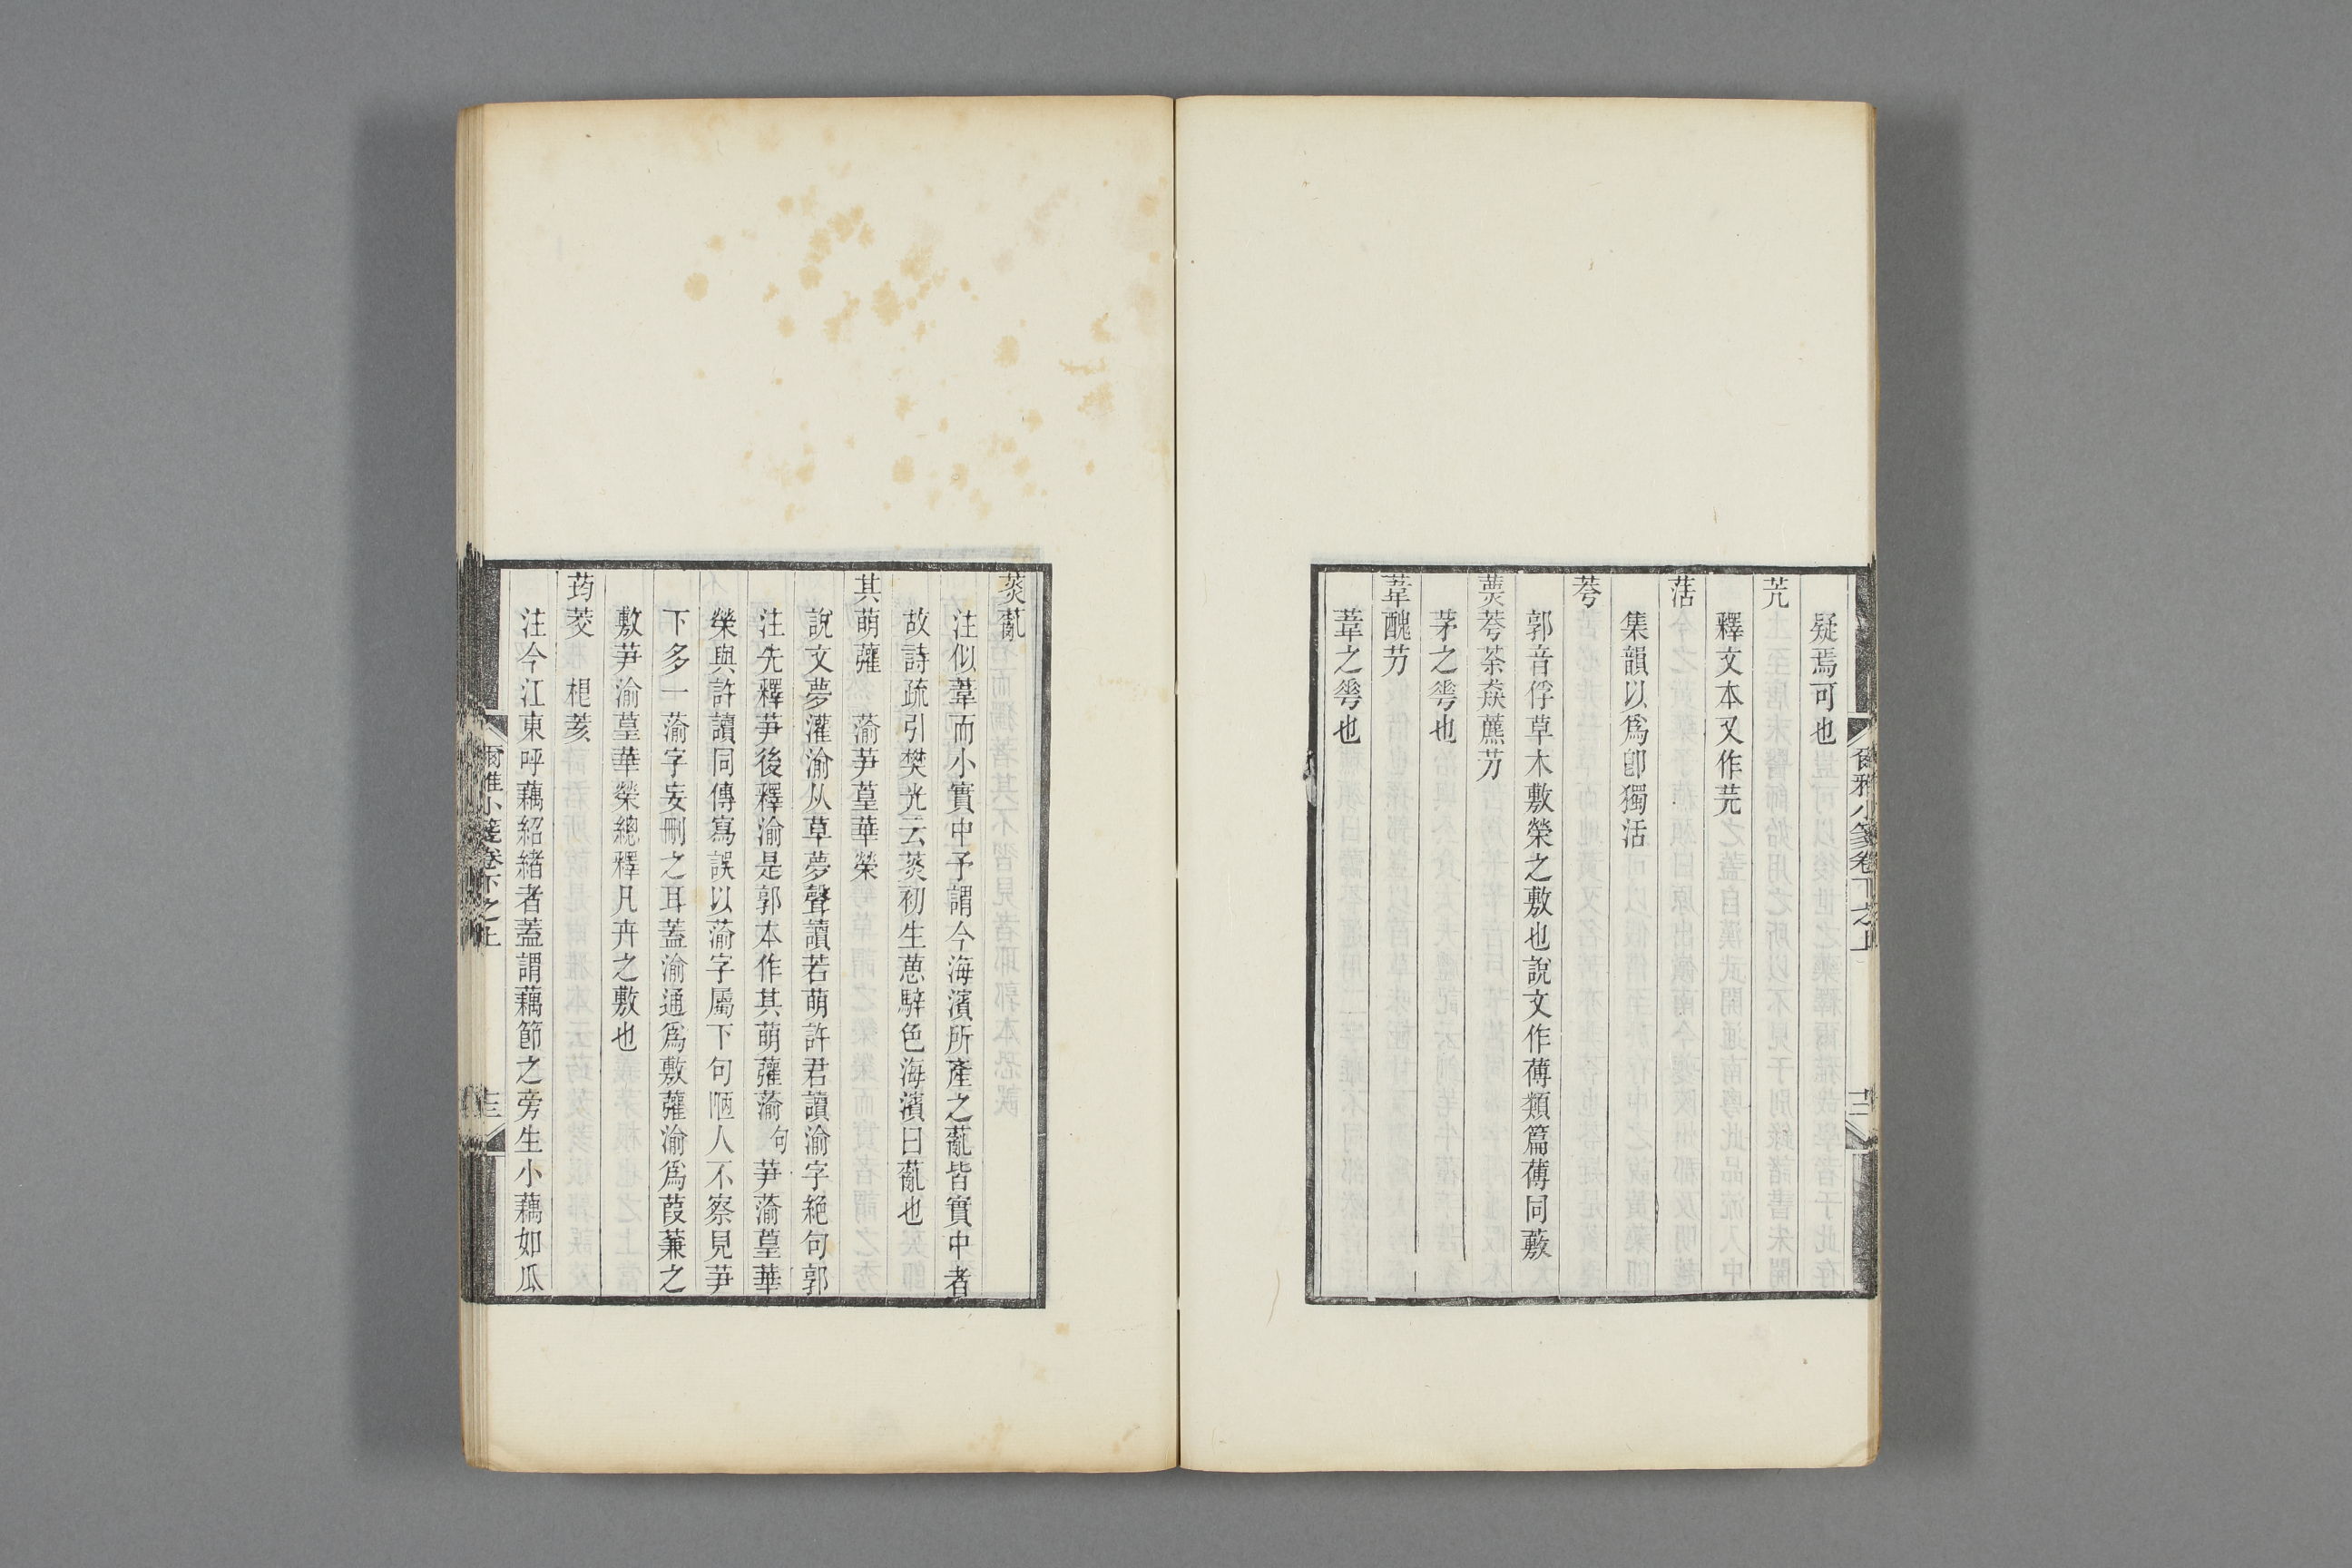 疑焉可也
艽
釋文本又作芫
葀
集韻以爲卽獨活
荂
郭音俘草木敷榮之敷也說文作䔍類篇䔍同蔜
蔈荂荼猋藨芀
茅之荂也
葦醜芀
葦之荂也
爾雅小箋卷下之上
十二
菼薍
注似葦而小實中予謂今海濱所產之薍皆實中者
故詩疏引樊光云菼初生葸騂色海濱曰薍也
其萌虇　蕍芛葟華榮
說文夢灌渝从草夢聲讀若萌許君讀渝字絶句郭
注先釋芛後釋渝是郭本作其萌虇蕍句芛蕍葟華
榮與許讀同傳寫誤以蕍字屬下句陋人不察見芛
下多一蕍字妄刪之耳蓋渝通爲敷虇渝爲葭蒹之
敷芛渝葟華榮總釋凡卉之敷也
荺茭　𣏌荄
注今江東呼藕紹緒者蓋謂藕節之旁生小藕如瓜
爾雅小箋卷下之上
十三